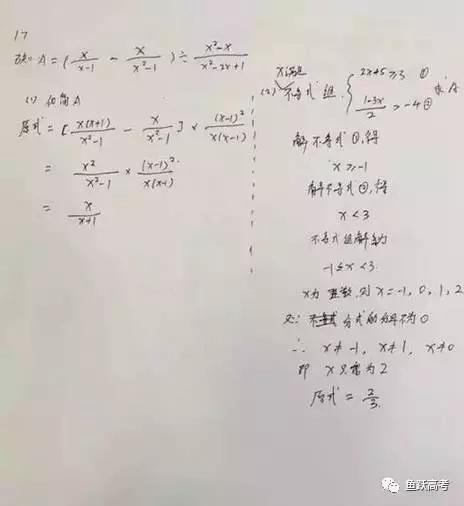 17
已知 A = (x/(x-1) - x/(x²-1)) ÷ (x²-x)/(x²-2x+1)
(1) 化简 A
原式 = [x(x+1)/(x²-1) - x/(x²-1)] × (x-1)²/(x(x-1))
= x²/(x²-1) × (x-1)²/(x(x-1))
= x/(x+1)
x满足
(2) 不等式组 { 2x+5≥3 ① 求A
(1-3x)/2 > -4 ②
解不等式①,得
x≥-1
解不等式②,得
x<3
不等式组解为
-1≤x<3
x为整数,则 x=-1, 0, 1, 2
又∵ 分式的分母不为0
∴ x≠-1, x≠1, x≠0
即 x只能为2
原式 = 2/3
鱼跃高考